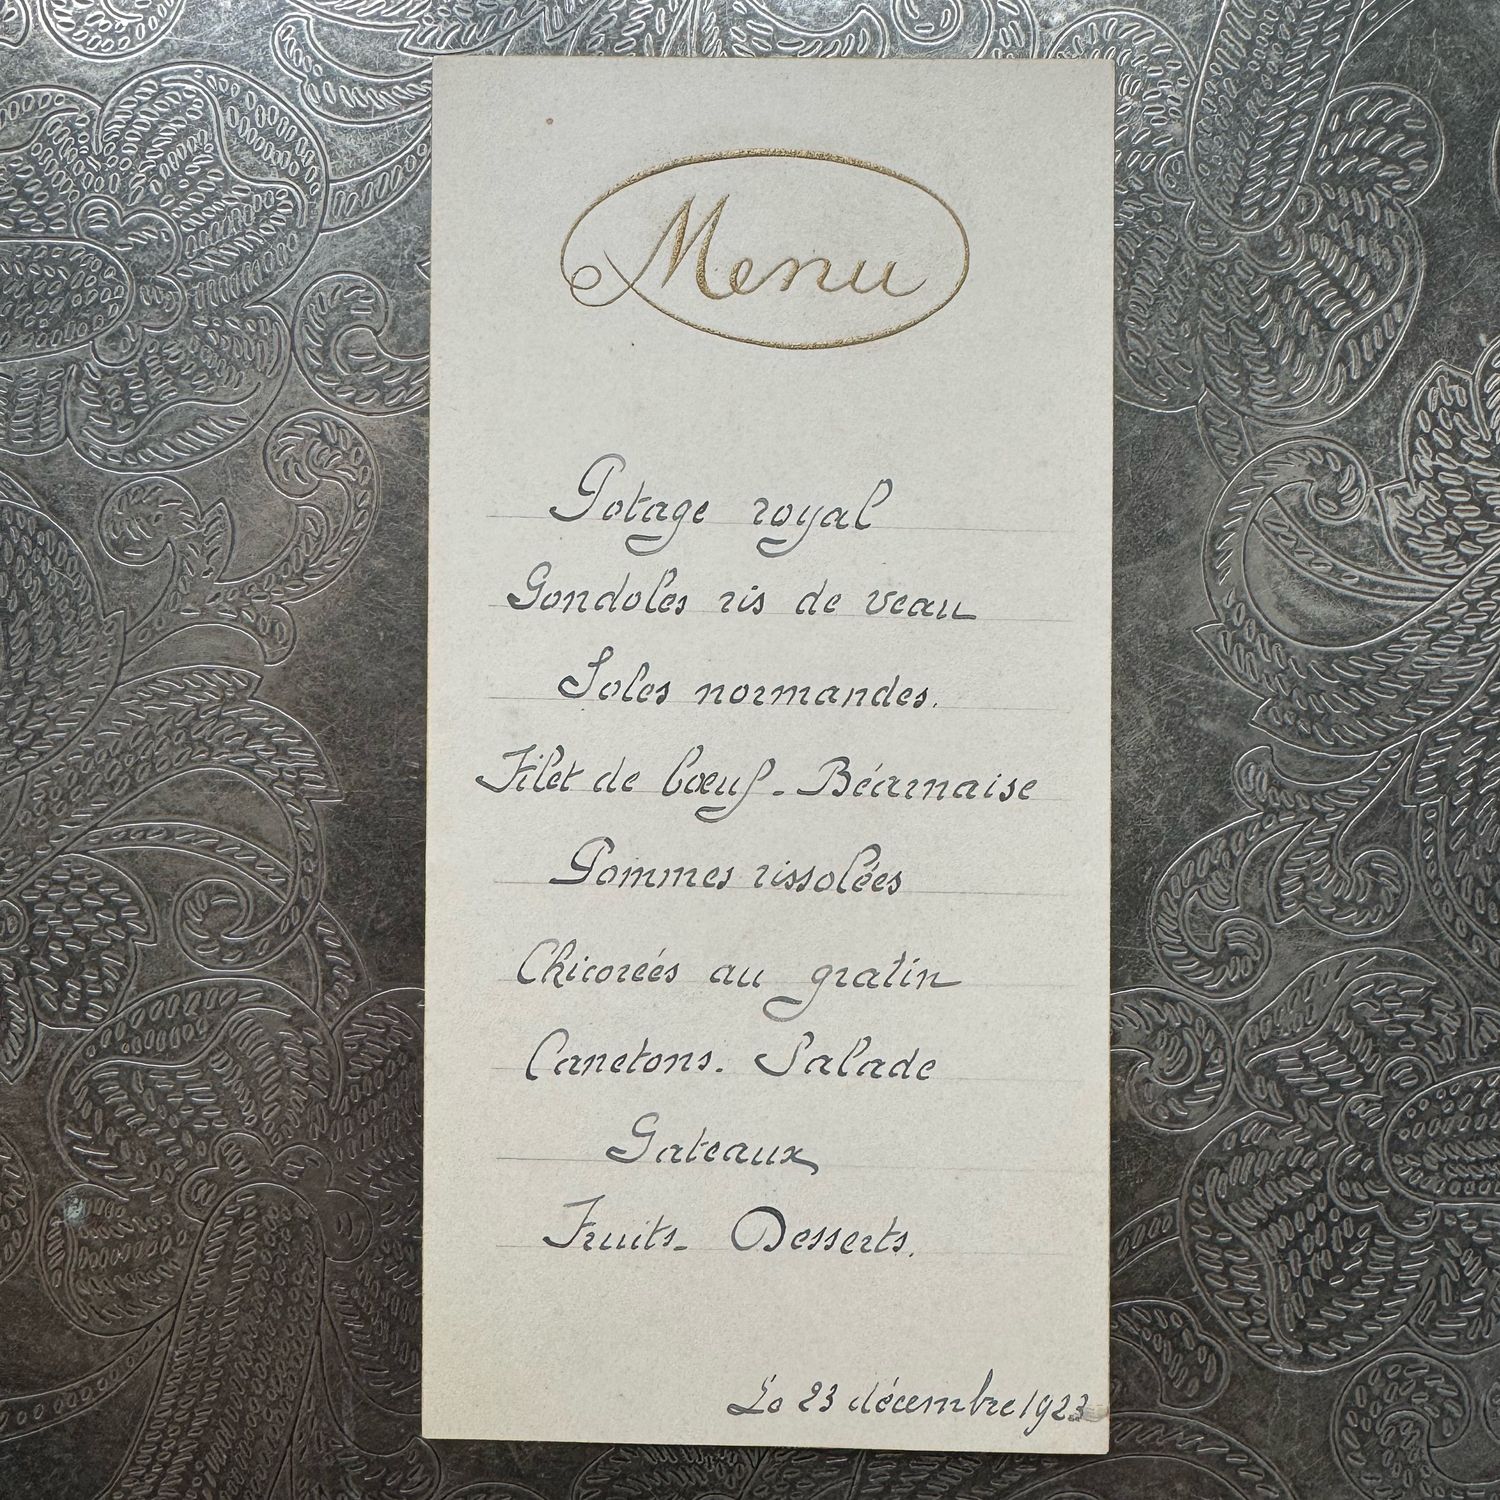 Menu
Potage royal
Gondoles ris de veau
Soles normandes.
Filet de bœuf - Béarnaise
Pommes rissolées
Chicorées au gratin
Canetons. Salade
Gateaux
Fruits - Desserts.
Le 23 décembre 1923